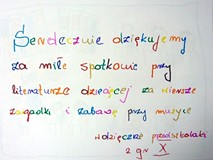 Serdecznie dziękujemy
za miłe spotkanie przy
literaturze dziecięcej za wiersze
zagadki i zabawę przy muzyce
wdzięczne przedszkolaki
z gr X